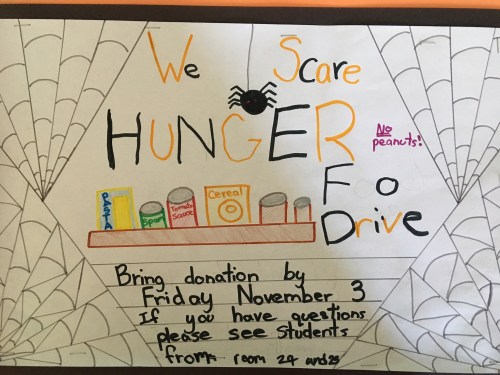 We Scare
HUNGER
No
peanuts!
F o
Drive
PASTA
Tomato
Sauce
Cereal
Bring donation by
Friday November 3
If you have questions
please see Students
from: room 24 and 25